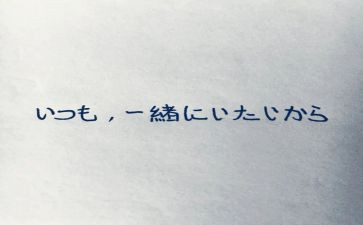 いつも，一緒にいたじから